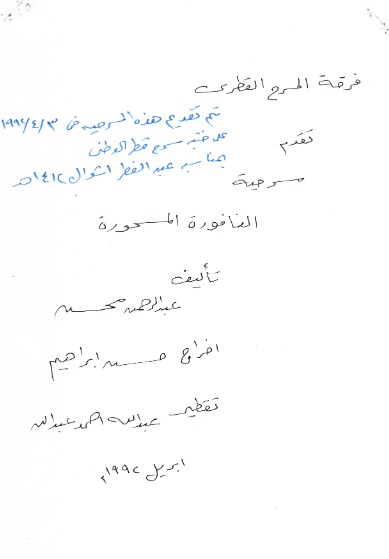 فرقة المسرح القطرى
تم تقديم هذه المسرحيه فى ١٩٩٢/٤/٣
على خشبة مسرح قطر الوطنى
بمناسبه عيد الفطر ١شوال ١٤١٢هـ
تقدم
مسرحية
النافورة المسحورة
تأليف
عبدالرحمن محسن
اخراج حسن ابراهيم
تقطير عبدالله احمد عبدالله
ابريل ١٩٩٢م